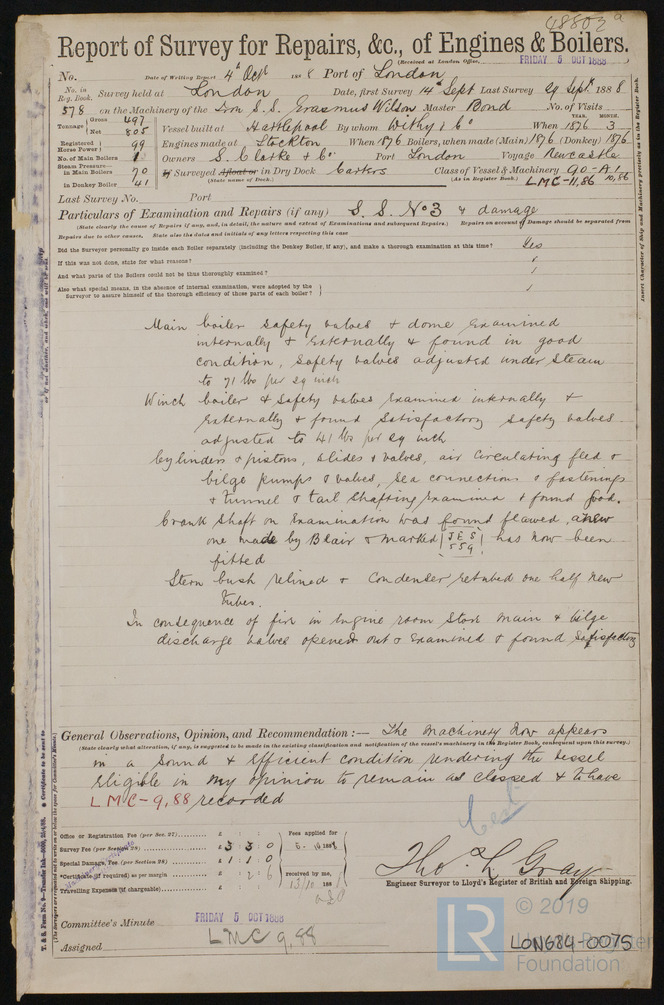 48807a
Report of Survey for Repairs, &c., of Engines & Boilers.
(Received at London Office, FRIDAY 5 OCT 1888
No. Date of Writing Report 4th Oct 1888 Port of London
No. in Reg. Book. Survey held at London Date, first Survey 14th Sept Last Survey 29 Sept 1888
578 on the Machinery of the Iron S.S. Erasmus Wilson Master Pond No. of Visits
Tonnage Gross 497 Net 805 Vessel built at Hartlepool By whom Withy & Co When 1876 3 YEAR. MONTH.
Registered Horse Power 99 Engines made at Stockton When 1876 Boilers, when made (Main) 1876 (Donkey) 1876
No. of Main Boilers 1 Owners S. Clarke & Co. Port London Voyage Newcastle
Steam Pressure in Main Boilers 70 If Surveyed Afloat or in Dry Dock Carkers Class of Vessel & Machinery 90-A1
(State name of Dock.) (As in Register Book.) LMC-11,86 10,86
in Donkey Boiler 41
Last Survey No. Port
Particulars of Examination and Repairs (if any) S.S. No 3 & damage
(State clearly the cause of Repairs if any, and, in detail, the nature and extent of Examinations and subsequent Repairs.) Repairs on account of Damage should be separated from
Repairs due to other causes. State also the dates and initials of any letters respecting this case
Did the Surveyor personally go inside each Boiler separately (including the Donkey Boiler, if any), and make a thorough examination at this time? Yes
If this was not done, state for what reasons?
And what parts of the Boilers could not be thus thoroughly examined?
Also what special means, in the absence of internal examination, were adopted by the
Surveyor to assure himself of the thorough efficiency of those parts of each boiler?
Main boiler safety valves & dome examined
internally & externally & found in good
condition, safety valves adjusted under steam
to 71 lbs per sq inch
Winch boiler & safety valves examined internally &
externally & found satisfactory safety valves
adjusted to 41 lbs per sq inch
Cylinders & pistons, slides & valves, air circulating feed &
bilge pumps & valves, sea connections & fastenings
& tunnel & tail shafting examined & found good.
Crank shaft on examination was found flawed, a new
one made by Blair & marked JES 559 has now been
fitted
Stern bush relined & condenser retubed one half new
tubes.
In consequence of fire in engine room store main & bilge
discharge valves opened out & examined & found satisfactory
General Observations, Opinion, and Recommendation :— The machinery now appears
(State clearly what alteration, if any, is suggested to be made in the existing classification and notification of the vessel's machinery in the Register Book, consequent upon this survey.)
in a sound & efficient condition rendering the vessel
eligible in my opinion to remain as classed & to have
LMC-9,88 recorded
Office or Registration Fee (per Sec. 27) £ : :
Survey Fee (per Section 28) £ 3 : 3 : 0
Special Damage, Fee (per Section 28) £ 1 : 1 : 0
Certificate (if required) as per margin £ : 2 : 6
Travelling Expenses (if chargeable) £ : :
Fees applied for
5-10 1888
received by me,
13/10 188
Cert
Tho. L Gray
Engineer Surveyor to Lloyd's Register of British and Foreign Shipping.
Committee's Minute FRIDAY 5 OCT 1888
Assigned LMC 9,88
LR
© 2019
Lloyd's Register
Foundation
LON684-0075